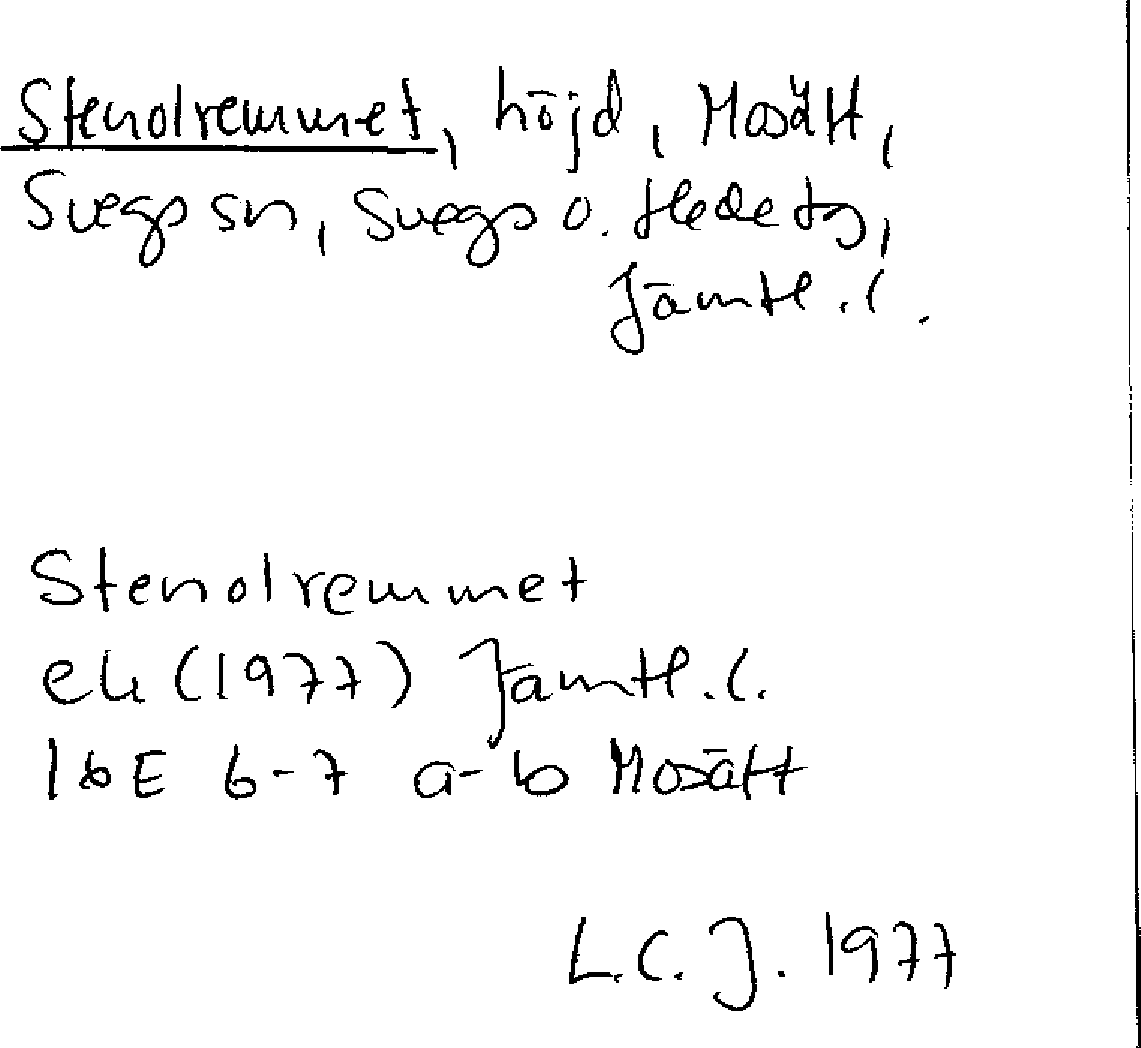 Stenolremmet, höjd, Mosätt,
Svegs sn, Svegs o. Hede tg,
Jämtl. l.
Stenolremmet
ek (1977) Jämtl. l.
16E 6-7 a-b Mosätt
L.C.J. 1977